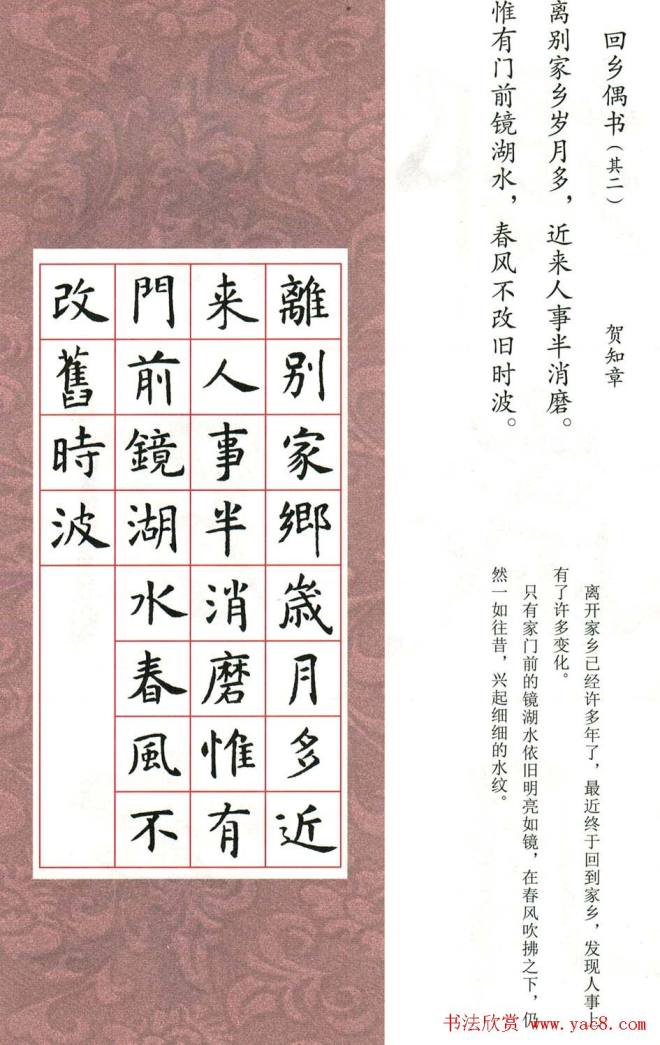 回乡偶书（其二）
贺知章
离别家乡岁月多，近来人事半消磨。
惟有门前镜湖水，春风不改旧时波。
离开家乡已经许多年了，最近终于回到家乡，发现人事上
有了许多变化。
只有家门前的镜湖水依旧明亮如镜，在春风吹拂之下，仍
然一如往昔，兴起细细的水纹。
離别家鄉歳月多近
来人事半消磨惟有
門前鏡湖水春風不
改舊時波
书法欣赏 www.yac8.com